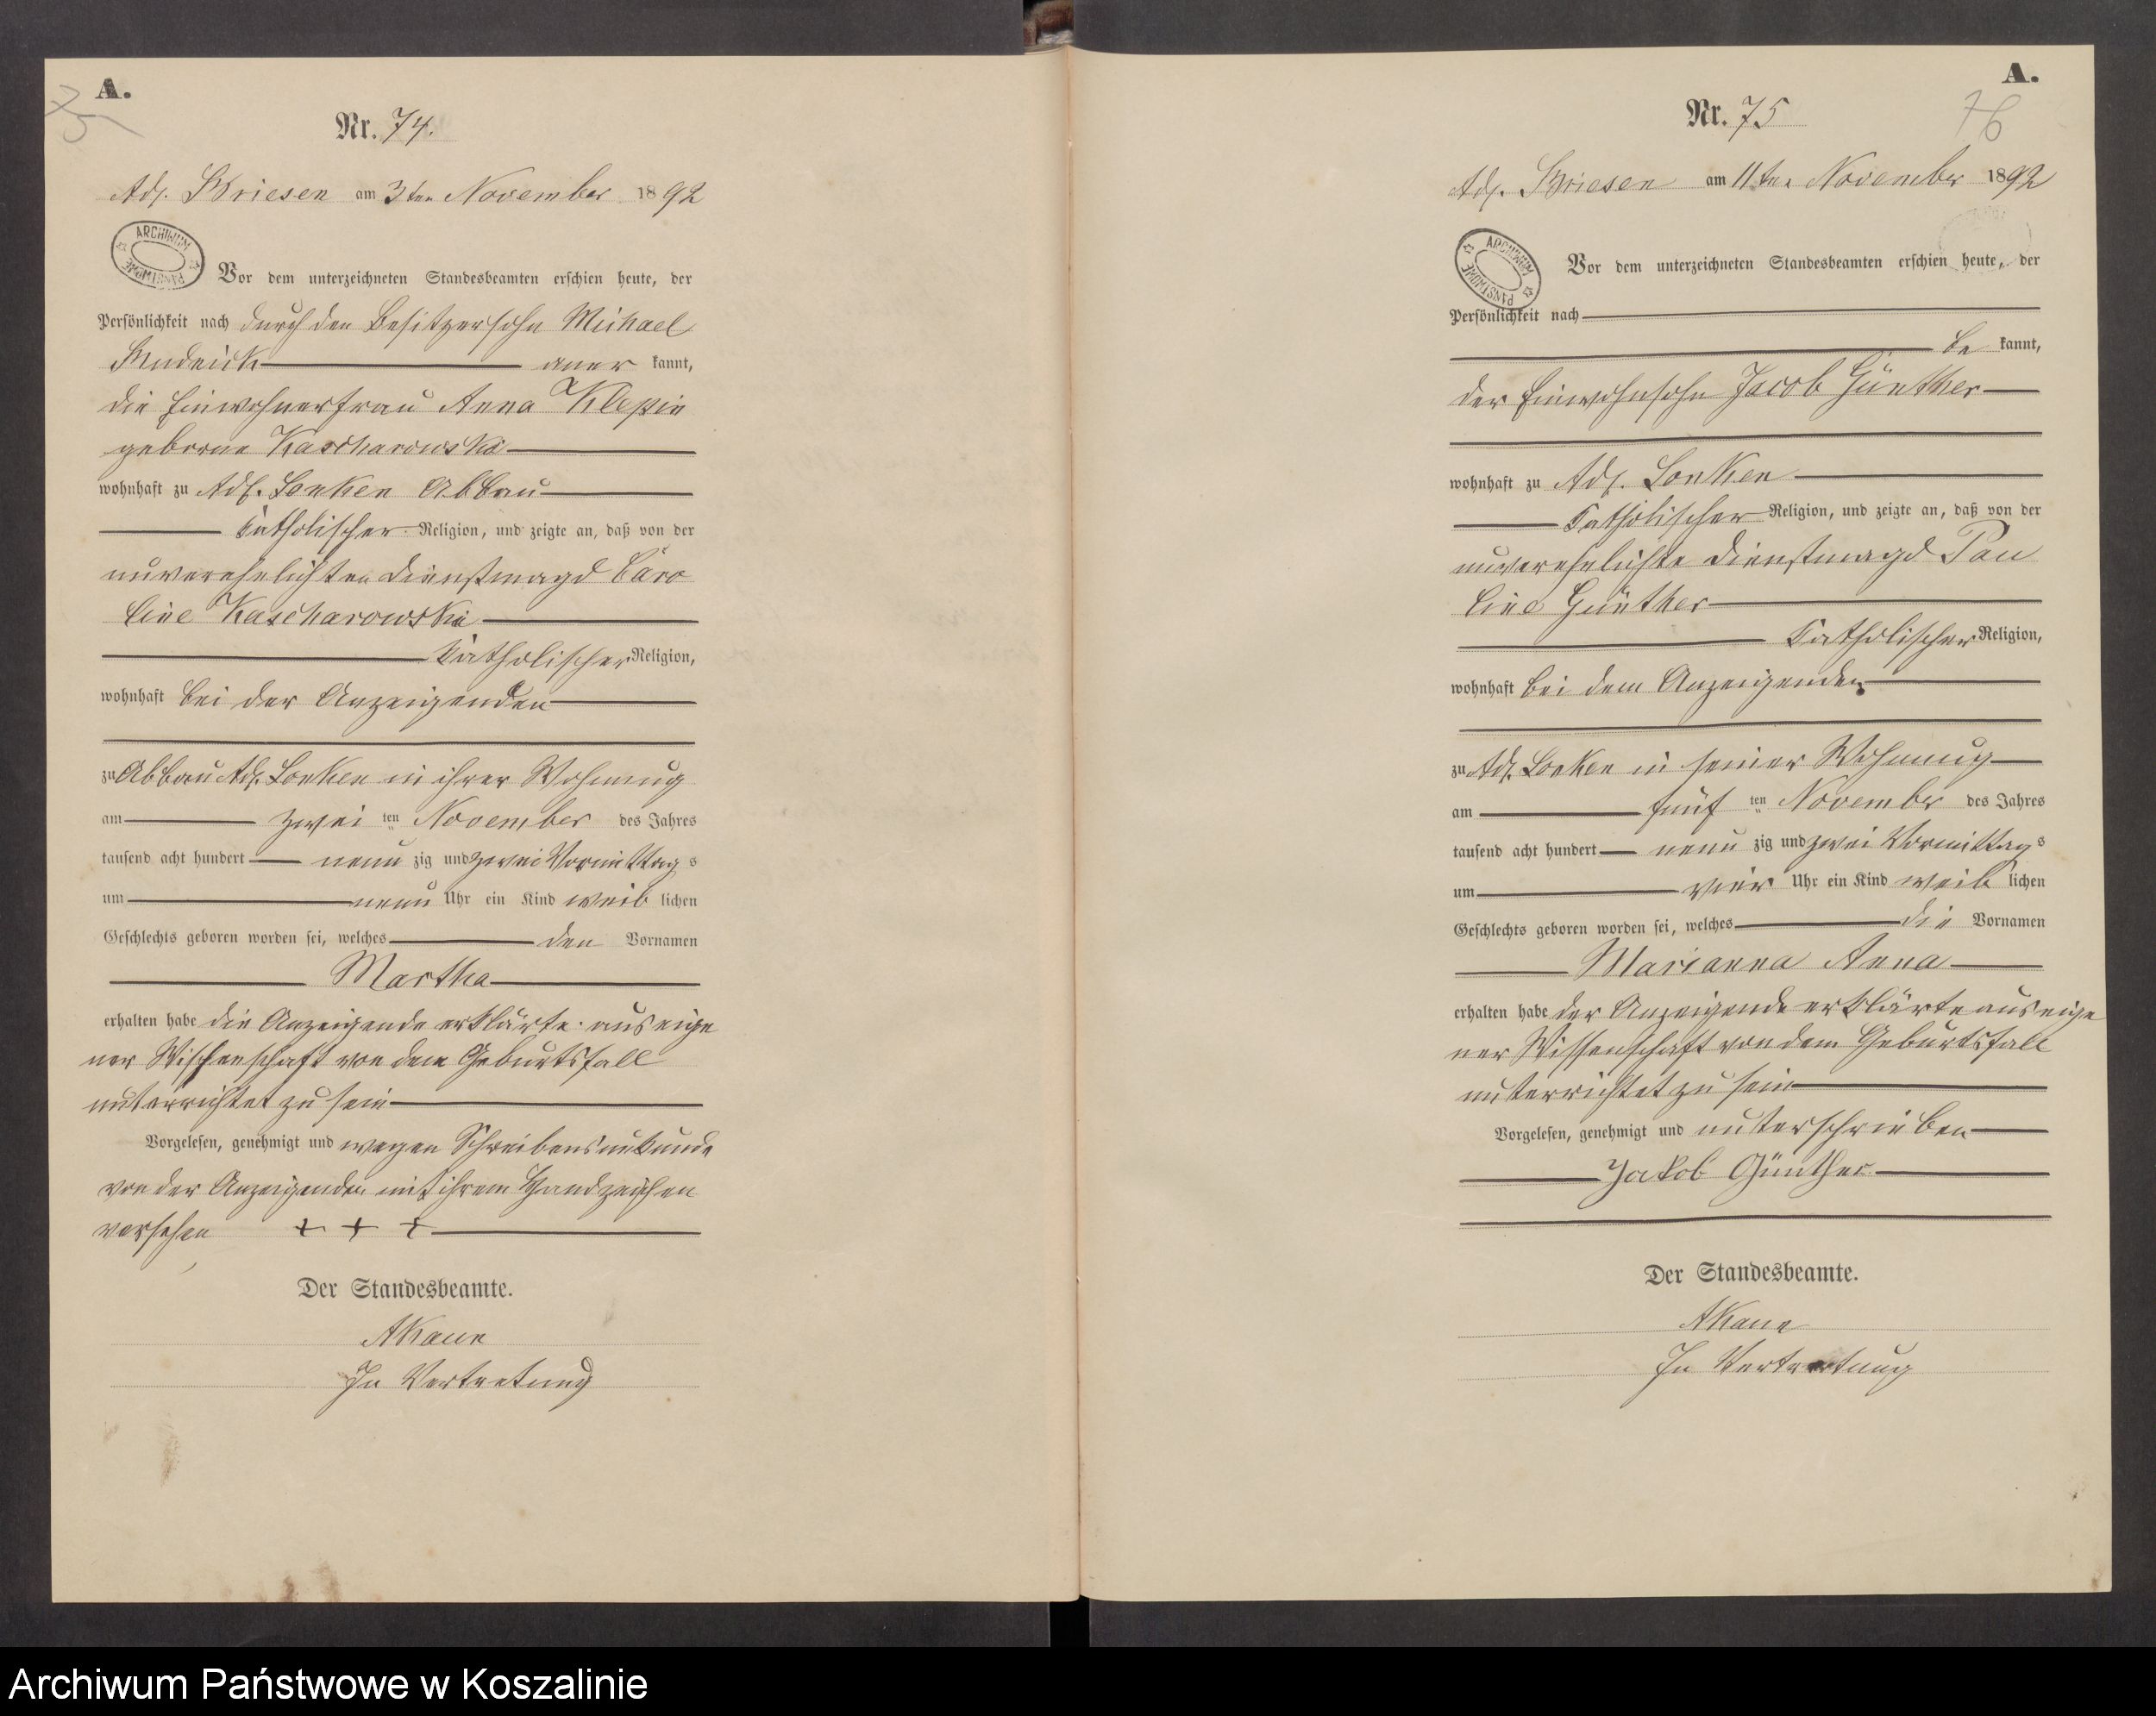 A.
75
Nr. 74.
Adl. Briesen am 3ten November 1892
ARCHIWUM PAŃSTWOWE
Vor dem unterzeichneten Standesbeamten erschien heute, der
Persönlichkeit nach durch den Besitzersohn Michael
Rudnick aner kannt,
die Einwohnerfrau Anna Klepin
geborne Kascharowski
wohnhaft zu Adl. Lonken Abbau
katholischer Religion, und zeigte an, daß von der
unverehelichten Dienstmagd Caro
line Kascharowski
katholischer Religion,
wohnhaft bei der Anzeigenden
zu Abbau Adl. Lonken in ihrer Wohnung
am zwei ten November des Jahres
tausend acht hundert neun zig und zwei Vormittag s
um neun Uhr ein Kind weib lichen
Geschlechts geboren worden sei, welches den Vornamen
Martha
erhalten habe die Anzeigende erklärte aus eige
ner Wissenschaft von dem Geburtsfall
unterrichtet zu sein
Vorgelesen, genehmigt und wegen Schreibensunkunde
von der Anzeigenden mit ihrem Handzeichen
versehen + + +
Der Standesbeamte.
In Vertretung
A.
76
Nr. 75
Adl. Briesen am 11ten November 1892
ARCHIWUM PAŃSTWOWE
Vor dem unterzeichneten Standesbeamten erschien heute, der
Persönlichkeit nach
be kannt,
der Einwohnsohn Jacob Günther
wohnhaft zu Adl. Lonken
katholischer Religion, und zeigte an, daß von der
unverehelichte Dienstmagd Pau
line Günther
katholischer Religion,
wohnhaft bei dem Anzeigenden
zu Adl. Lonken in seiner Wohnung
am fünf ten November des Jahres
tausend acht hundert neun zig und zwei Vormittag s
um vier Uhr ein Kind weib lichen
Geschlechts geboren worden sei, welches die Vornamen
Marianna Anna
erhalten habe der Anzeigende erklärte aus eige
ner Wissenschaft von dem Geburtsfall
unterrichtet zu sein
Vorgelesen, genehmigt und unterschrieben
Jakob Günther
Der Standesbeamte.
In Vertretung
Archiwum Państwowe w Koszalinie